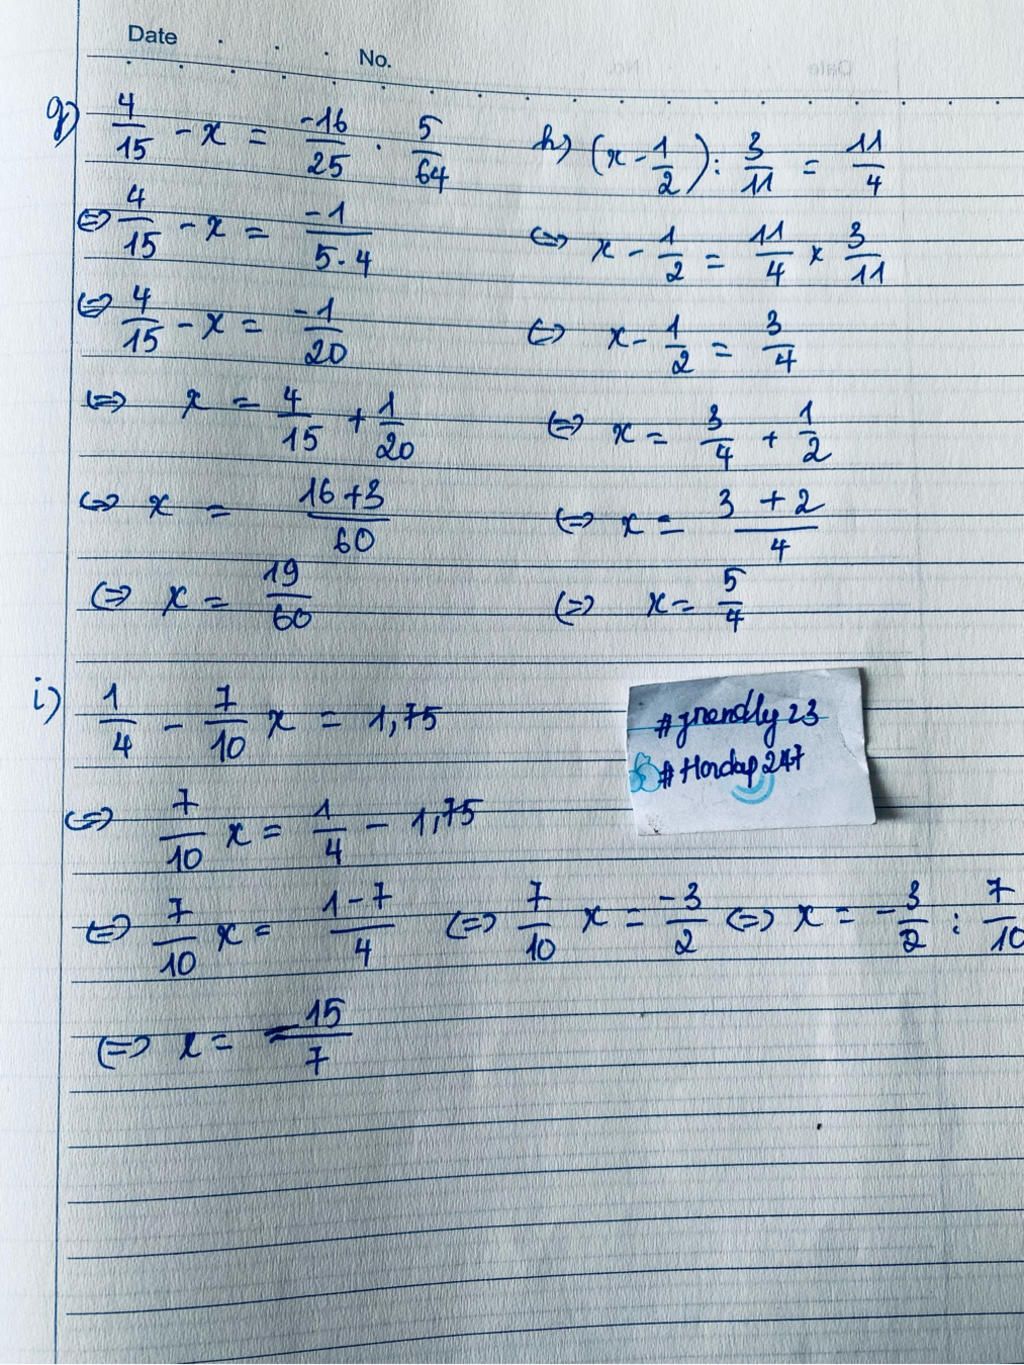 Date . . . No.
g) 4/15 - x = -16/25 . 5/64
⇔ 4/15 - x = -1/5.4
⇔ 4/15 - x = -1/20
⇔ x = 4/15 + 1/20
⇔ x = 16+3/60
⇔ x = 19/60
h) (x - 1/2) : 3/11 = 11/4
⇔ x - 1/2 = 11/4 × 3/11
⇔ x - 1/2 = 3/4
⇔ x = 3/4 + 1/2
⇔ x = 3 + 2/4
⇔ x = 5/4
i) 1/4 - 7/10 x = 1,75
⇔ 7/10 x = 1/4 - 1,75
⇔ 7/10 x = 1-7/4 ⇔ 7/10 x = -3/2 ⇔ x = -3/2 : 7/10
⇔ x = -15/7
#Hordap247